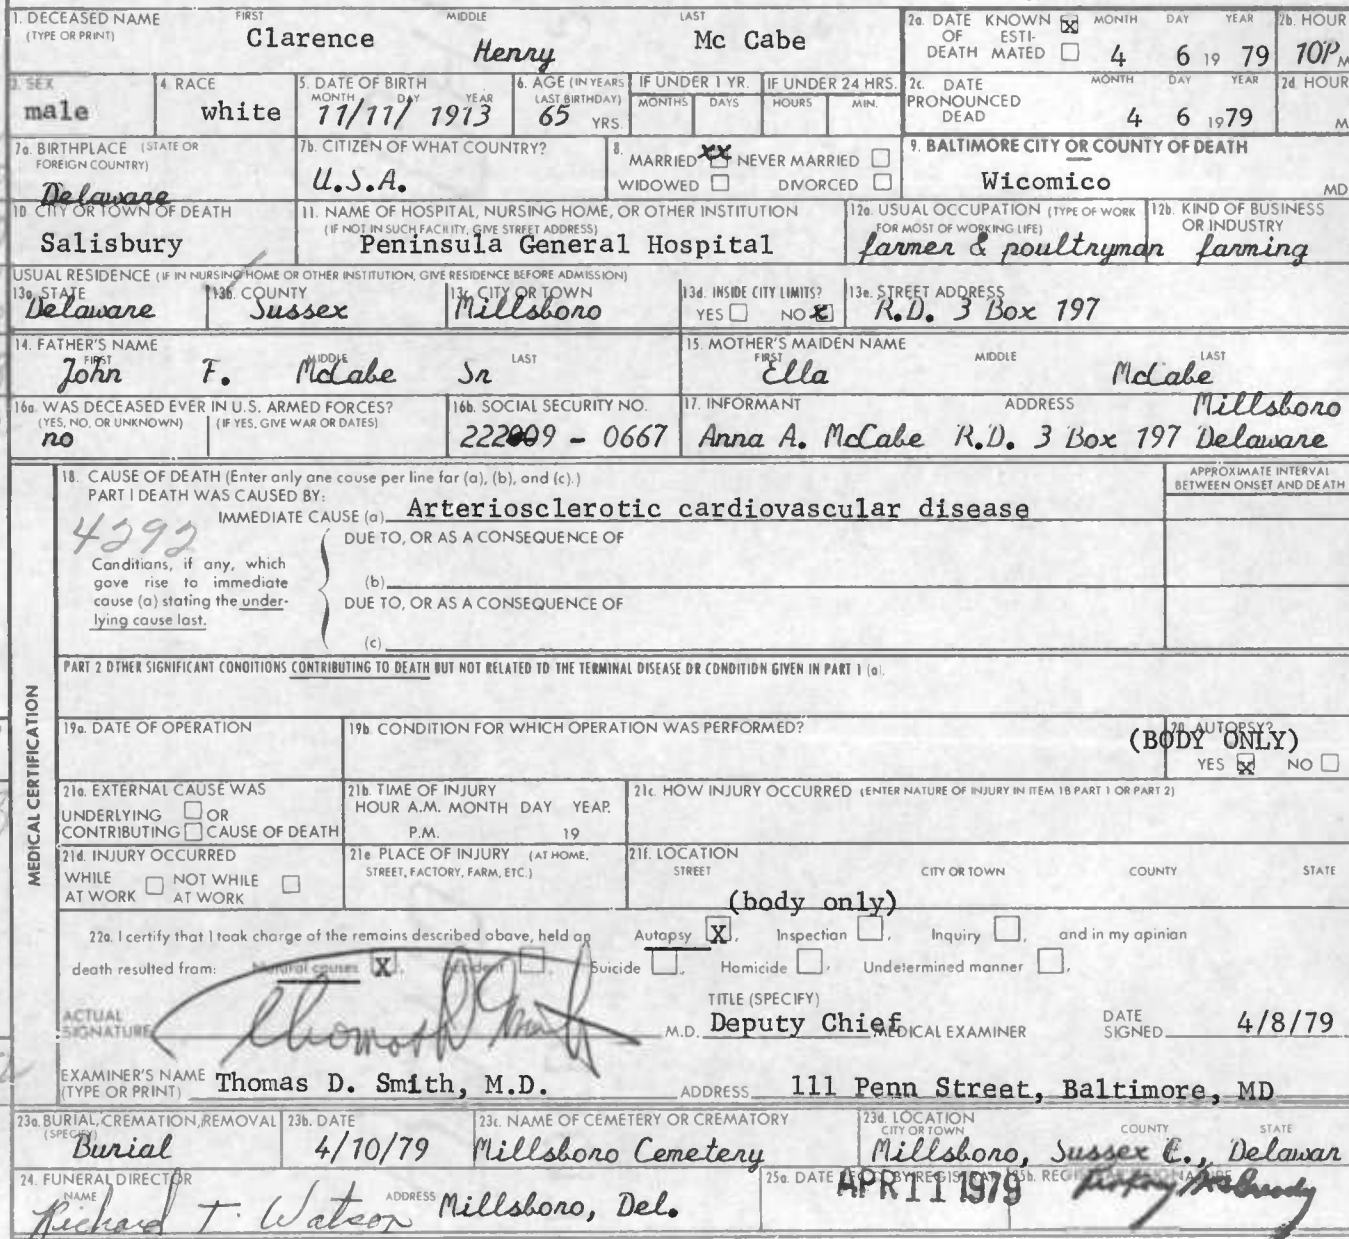 1. DECEASED NAME (TYPE OR PRINT) FIRST MIDDLE LAST
Clarence Henry Mc Cabe
2a. DATE OF DEATH KNOWN X ESTIMATED MONTH DAY YEAR
4 6 19 79
2b. HOUR
10P M
3. SEX
male
4. RACE
white
5. DATE OF BIRTH MONTH DAY YEAR
11/11/ 1913
6. AGE (IN YEARS LAST BIRTHDAY)
65 YRS.
IF UNDER 1 YR. MONTHS DAYS
IF UNDER 24 HRS. HOURS MIN.
2c. DATE PRONOUNCED DEAD MONTH DAY YEAR
4 6 1979
2d HOUR
M
7a. BIRTHPLACE (STATE OR FOREIGN COUNTRY)
Delaware
7b. CITIZEN OF WHAT COUNTRY?
U.S.A.
8. MARRIED xx NEVER MARRIED
WIDOWED DIVORCED
9. BALTIMORE CITY OR COUNTY OF DEATH
Wicomico MD
10. CITY OR TOWN OF DEATH
Salisbury
11. NAME OF HOSPITAL, NURSING HOME, OR OTHER INSTITUTION
(IF NOT IN SUCH FACILITY, GIVE STREET ADDRESS)
Peninsula General Hospital
12a. USUAL OCCUPATION (TYPE OF WORK FOR MOST OF WORKING LIFE)
farmer & poultryman
12b. KIND OF BUSINESS OR INDUSTRY
farming
USUAL RESIDENCE (IF IN NURSING HOME OR OTHER INSTITUTION, GIVE RESIDENCE BEFORE ADMISSION)
13a. STATE
Delaware
13b. COUNTY
Sussex
13c. CITY OR TOWN
Millsboro
13d. INSIDE CITY LIMITS?
YES NO x
13e. STREET ADDRESS
R.D. 3 Box 197
14. FATHER'S NAME FIRST MIDDLE LAST
John F. McCabe Sr
15. MOTHER'S MAIDEN NAME FIRST MIDDLE LAST
Ella McCabe
16a. WAS DECEASED EVER IN U.S. ARMED FORCES?
(YES, NO, OR UNKNOWN) (IF YES, GIVE WAR OR DATES)
no
16b. SOCIAL SECURITY NO.
222009 - 0667
17. INFORMANT ADDRESS
Anna A. McCabe R.D. 3 Box 197 Millsboro Delaware
MEDICAL CERTIFICATION
18. CAUSE OF DEATH (Enter only one cause per line for (a), (b), and (c).)
PART I DEATH WAS CAUSED BY:
IMMEDIATE CAUSE (a) Arteriosclerotic cardiovascular disease
APPROXIMATE INTERVAL BETWEEN ONSET AND DEATH
4292
Conditions, if any, which gave rise to immediate cause (a) stating the underlying cause last.
DUE TO, OR AS A CONSEQUENCE OF
(b)
DUE TO, OR AS A CONSEQUENCE OF
(c)
PART 2 OTHER SIGNIFICANT CONDITIONS CONTRIBUTING TO DEATH BUT NOT RELATED TO THE TERMINAL DISEASE OR CONDITION GIVEN IN PART 1 (a).
19a. DATE OF OPERATION
19b. CONDITION FOR WHICH OPERATION WAS PERFORMED?
20. AUTOPSY?
(BODY ONLY)
YES X NO
21a. EXTERNAL CAUSE WAS
UNDERLYING OR
CONTRIBUTING CAUSE OF DEATH
21b. TIME OF INJURY
HOUR A.M. MONTH DAY YEAR
P.M. 19
21c. HOW INJURY OCCURRED (ENTER NATURE OF INJURY IN ITEM 18 PART 1 OR PART 2)
21d. INJURY OCCURRED
WHILE AT WORK NOT WHILE AT WORK
21e PLACE OF INJURY (AT HOME, STREET, FACTORY, FARM, ETC.)
21f. LOCATION
STREET CITY OR TOWN COUNTY STATE
(body only)
22a. I certify that I took charge of the remains described above, held an Autopsy X, Inspection, Inquiry, and in my opinion
death resulted from: Natural causes X, Accident, Suicide, Homicide, Undetermined manner,
ACTUAL SIGNATURE Thomas D Smith M.D.
TITLE (SPECIFY)
Deputy Chief MEDICAL EXAMINER
DATE SIGNED 4/8/79
EXAMINER'S NAME (TYPE OR PRINT) Thomas D. Smith, M.D.
ADDRESS 111 Penn Street, Baltimore, MD
23a. BURIAL, CREMATION, REMOVAL (SPECIFY)
Burial
23b. DATE
4/10/79
23c. NAME OF CEMETERY OR CREMATORY
Millsboro Cemetery
23d. LOCATION CITY OR TOWN COUNTY STATE
Millsboro, Sussex C., Delawar
24. FUNERAL DIRECTOR
NAME Richard T. Watson ADDRESS Millsboro, Del.
25a. DATE BY REGISTRAR
APR 11 1979
25b.